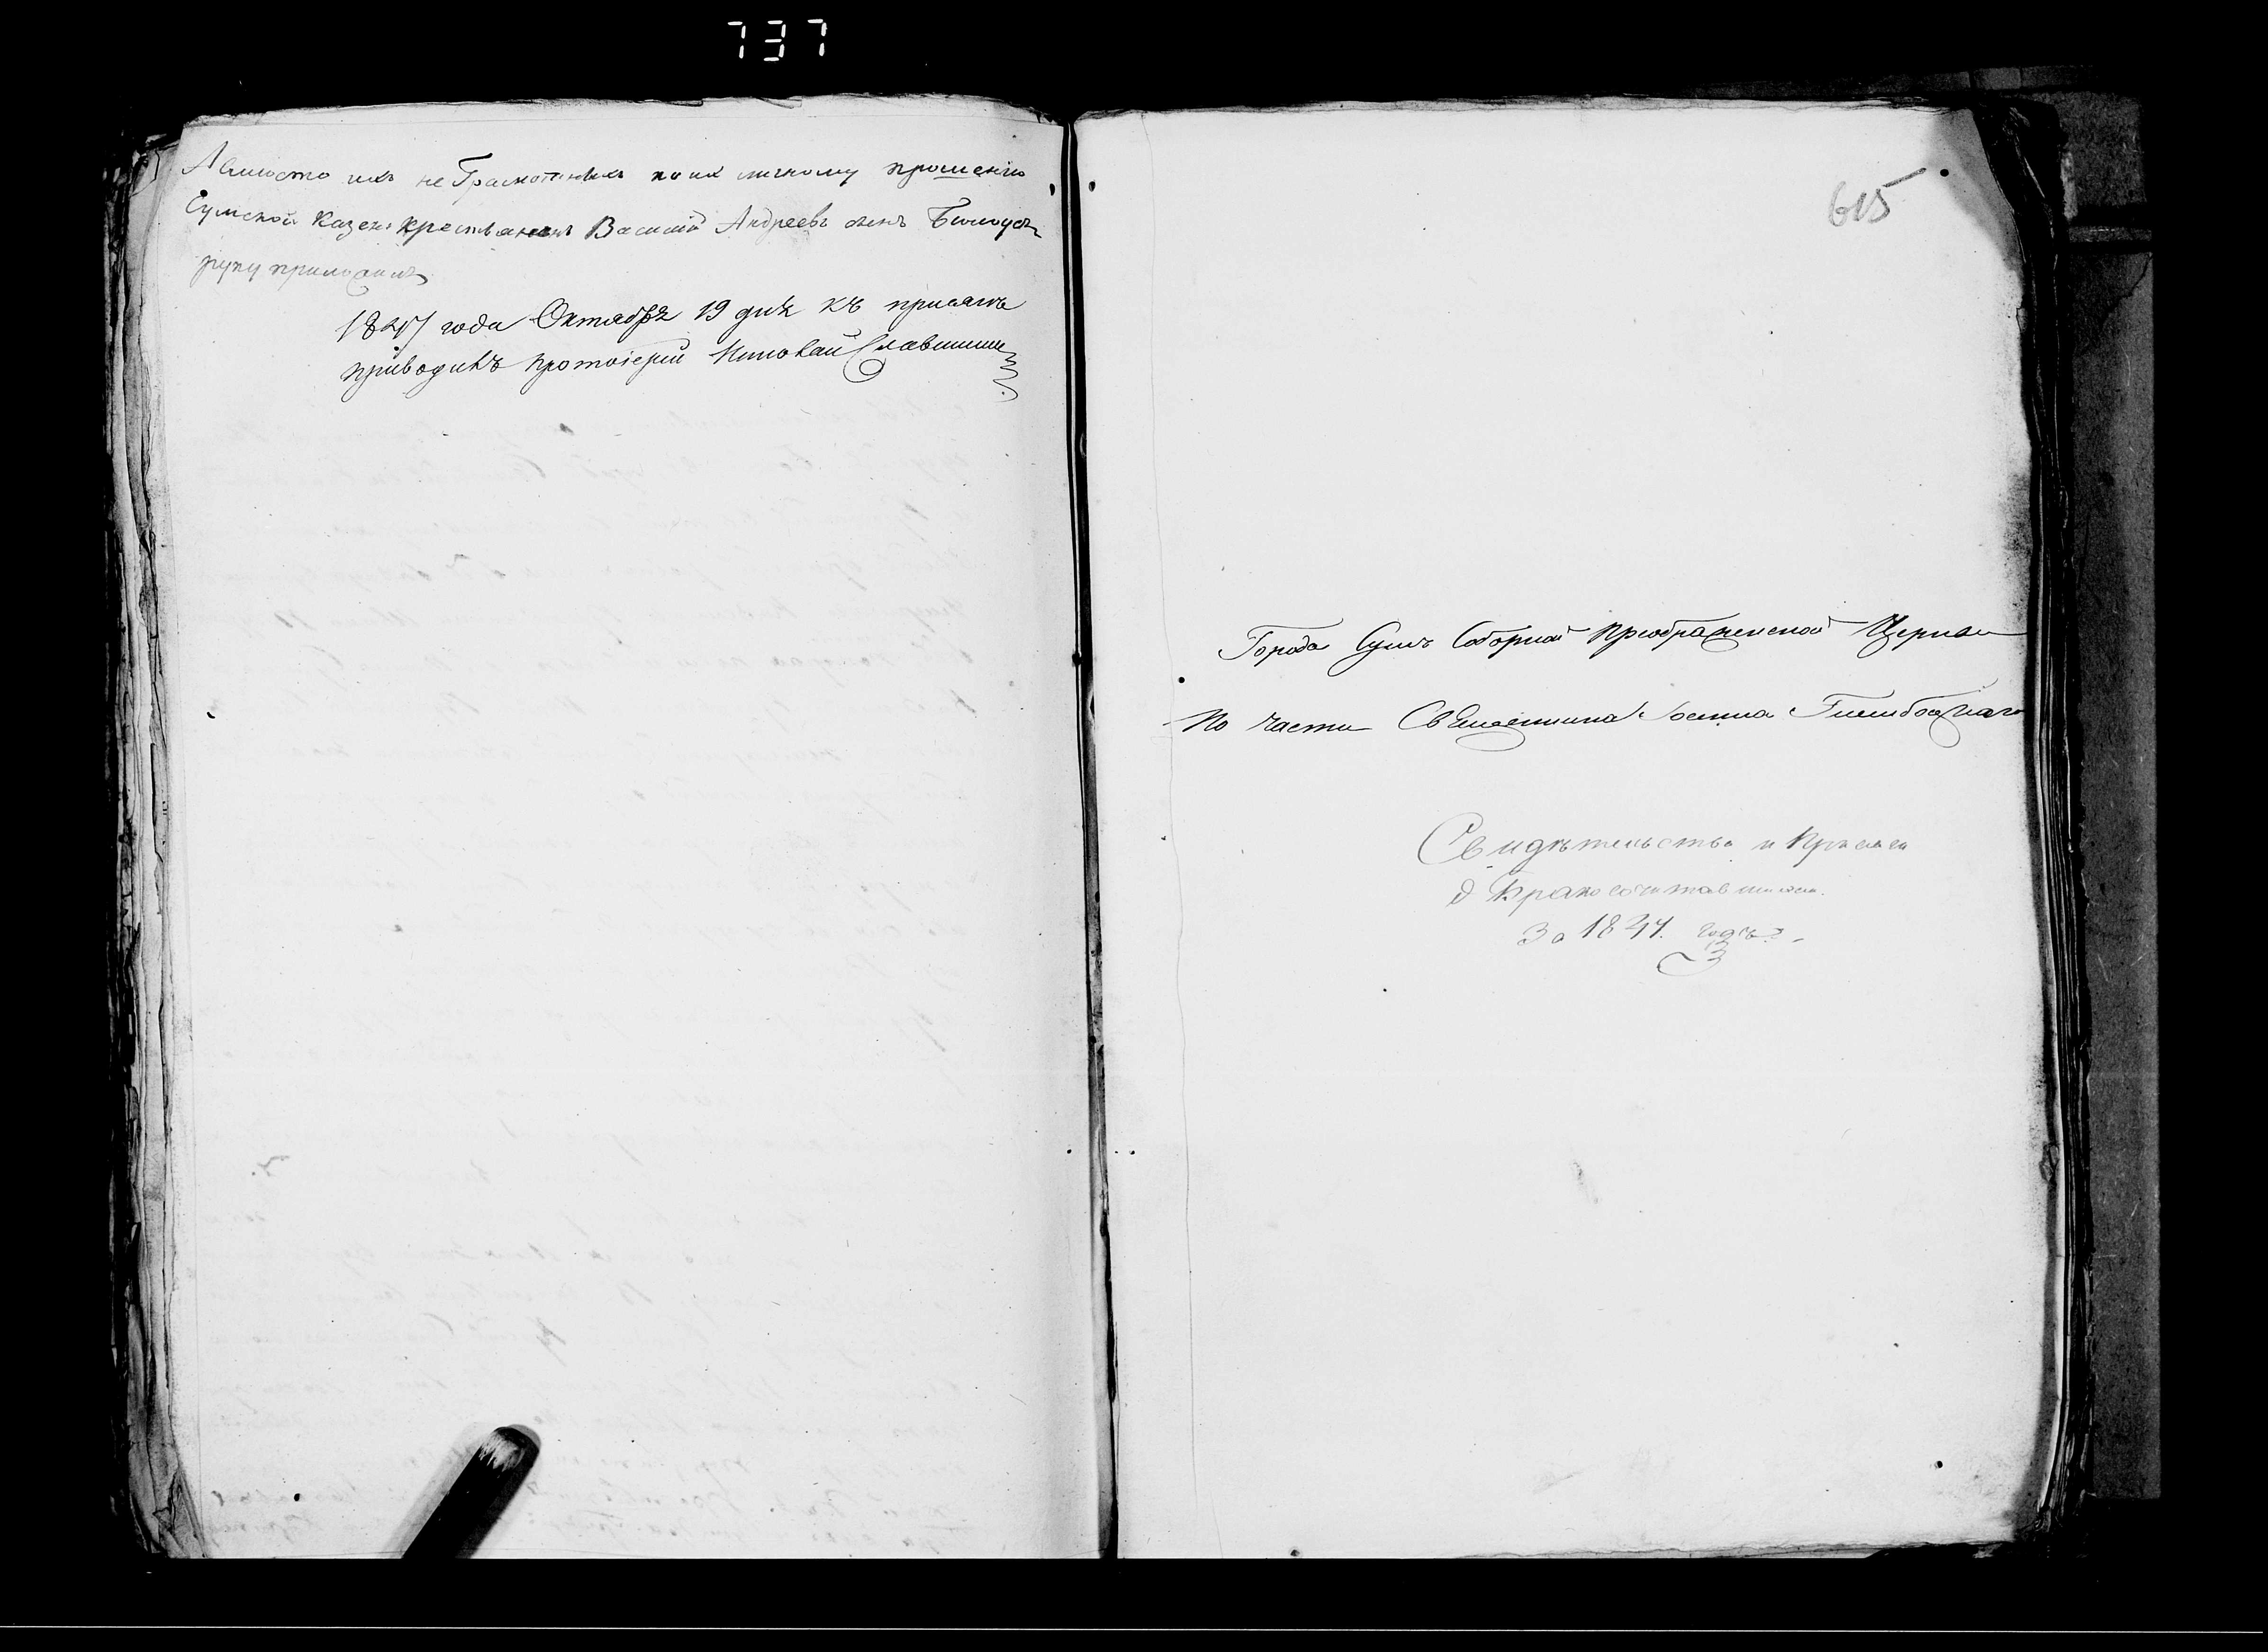 737
А вместо ихъ не Грамотныхъ по их личному прошению
Сумской Казен: крестьянинъ Василий Андреевъ сынъ Белоусъ
руку приложилъ
1847 года Октября 19 дня къ присяге
приводилъ протоіерей Николай
615
Города Сумъ Соборной Преображенской Церкви
По части Священника Іоанна
Свидѣтельства и Присяги
о Бракосочитавшихся.
За 1847. годъ.